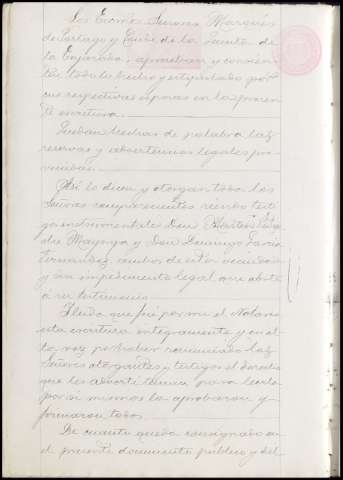 Los Excmos. Señores Marqués
de Portago y Conde de la Quinta de
la Enjarada, aprueban y consien-
ten todo lo hecho y estipulado por
sus respectivas esposas en la presen-
te escritura.
Quedan hechas de palabra las
reservas y advertencias legales pro-
venidas.
Así lo dicen y otorgan todos los
Señores comparecientes siendo testi-
gos instrumentales Don
de Mayorga y Don Domingo
Fernandez, ambos de esta vecindad
y sin impedimento legal que obste
á su testimonio.
Y leida que fué por mi el Notario
esta escritura integramente y en al-
ta voz por haber renunciado los
Señores otorgantes y testigos el derecho
que les advertí tenian para leerla
por si mismos la aprobaron y
firmaron todos.
De cuanto queda consignado en
el presente documento público y del